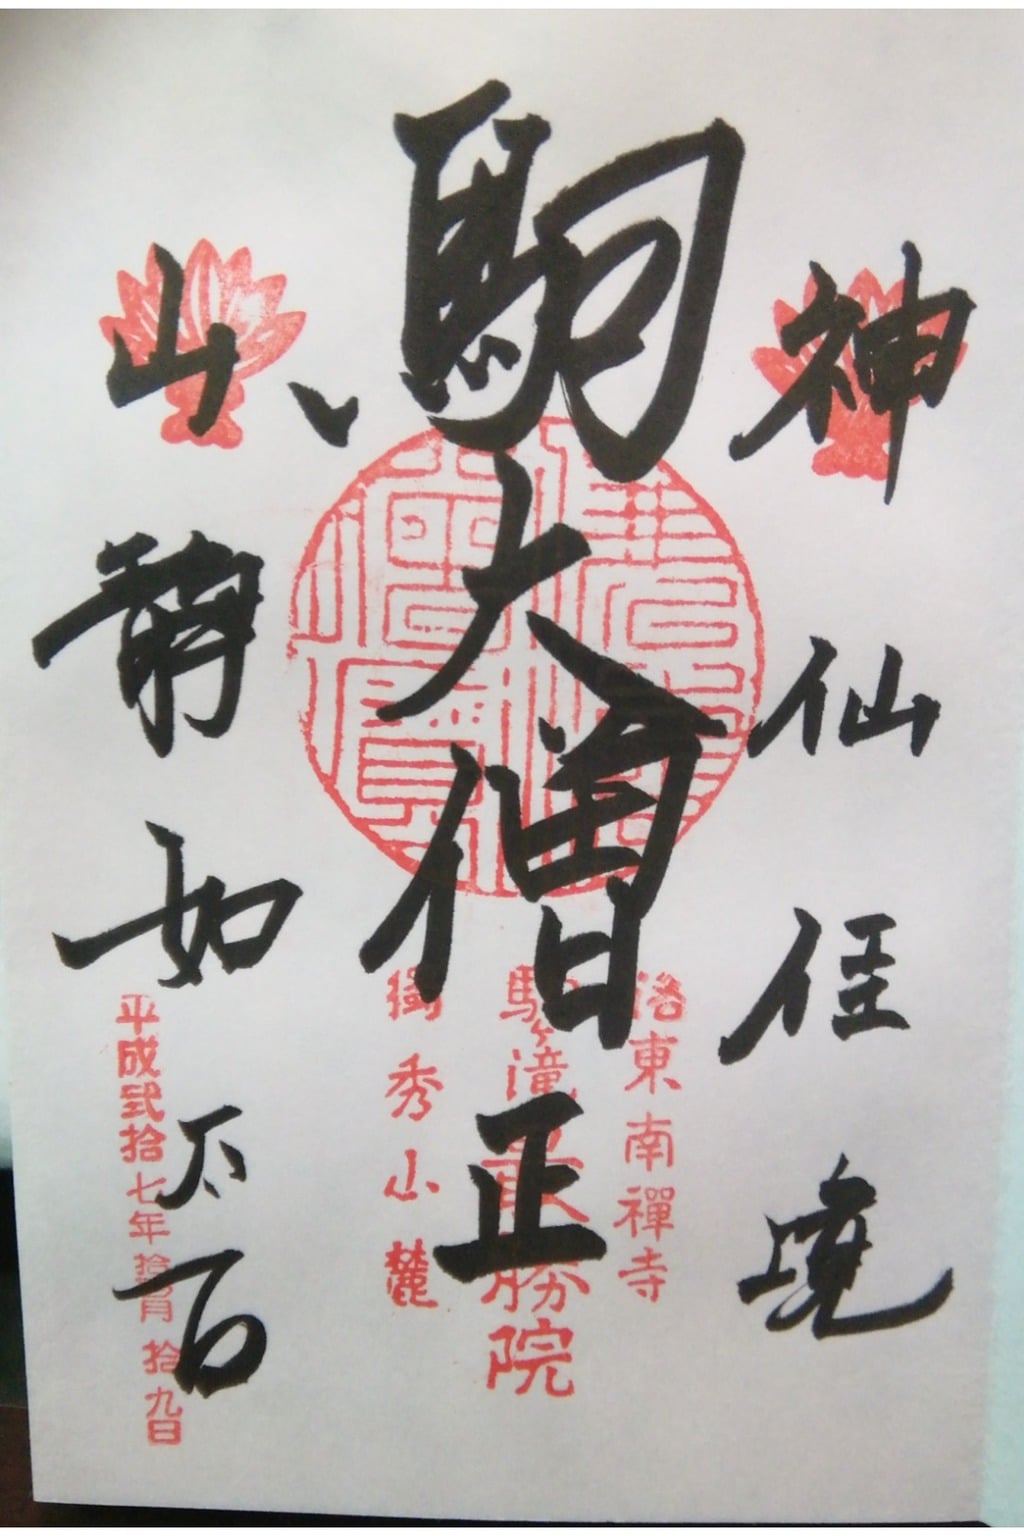 神仙佳境
駒大僧正
山静如太古
洛東南禪寺
駒ヶ滝最勝院
獨秀山麓
平成弐拾七年拾月拾九日